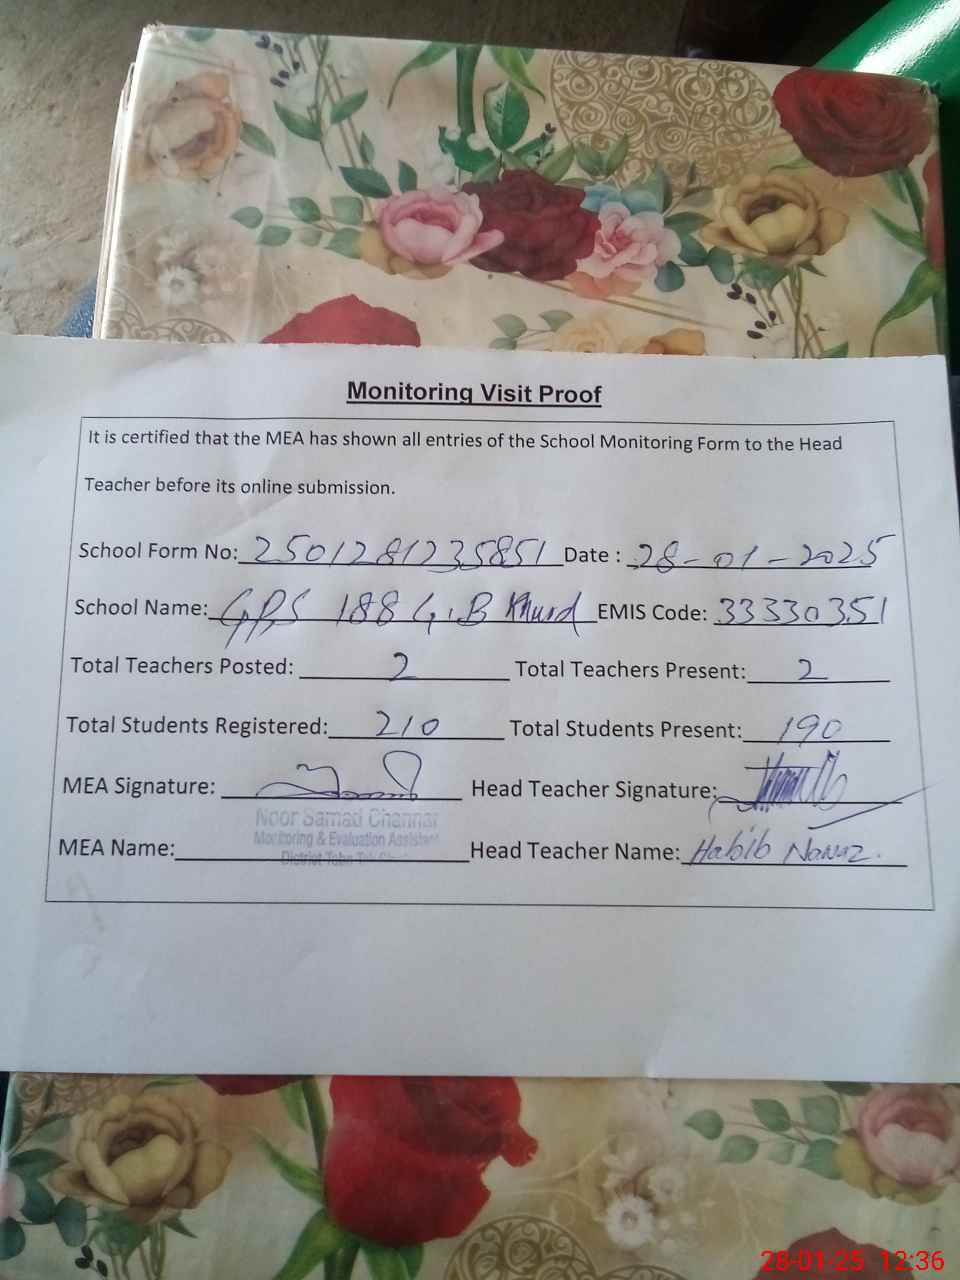 Monitoring Visit Proof
It is certified that the MEA has shown all entries of the School Monitoring Form to the Head
Teacher before its online submission.
School Form No: 2501281235851 Date : 28-01-2025
School Name: GPS 188 G.B Khurd EMIS Code: 33330351
Total Teachers Posted: 2 Total Teachers Present: 2
Total Students Registered: 210 Total Students Present: 190
MEA Signature: Head Teacher Signature:
Noor Samad Channar
Monitoring & Evaluation Assistant
District Toba Tek
MEA Name: Head Teacher Name: Habib Nawaz.
28-01-25 12:36